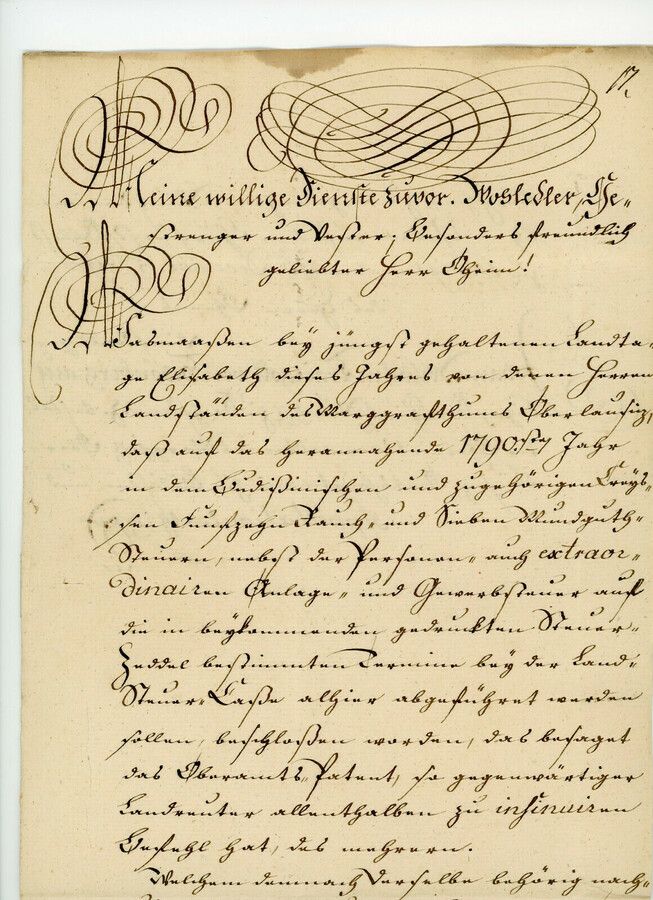 17.
Meine willige Dienste zuvor. Wohledler, Ge-
strenger und Vester, besonders freundlich
geliebter Herr Oheim!
Wasmaaßen bey jüngst gehaltenen Landta-
ge Elisabeth dieses Jahres von denen Herren
Landständen des Marggrafthums Oberlausiz,
daß auf das herannahende 1790.ste Jahr
in dem Budißinischen und zugehörigen Creys-
sen Funfzehn Rauch- und Sieben Mundguth-
Steuern, nebst der Personen- auch extraor-
dinairen Anlage- und Gewerbsteuer auf
die in beykommenden gedruckten Steuer-
Zeddel bestimmten Termine bey der Land-
Steuer-Caße alhier abgeführet werden
sollen, beschloßen worden, das besaget
das Oberamts-Patent, so gegenwärtiger
Landreuter allenthalben zu insinuiren
Befehl hat, des mehrern.
Welchem demnach derselbe behörig nach-